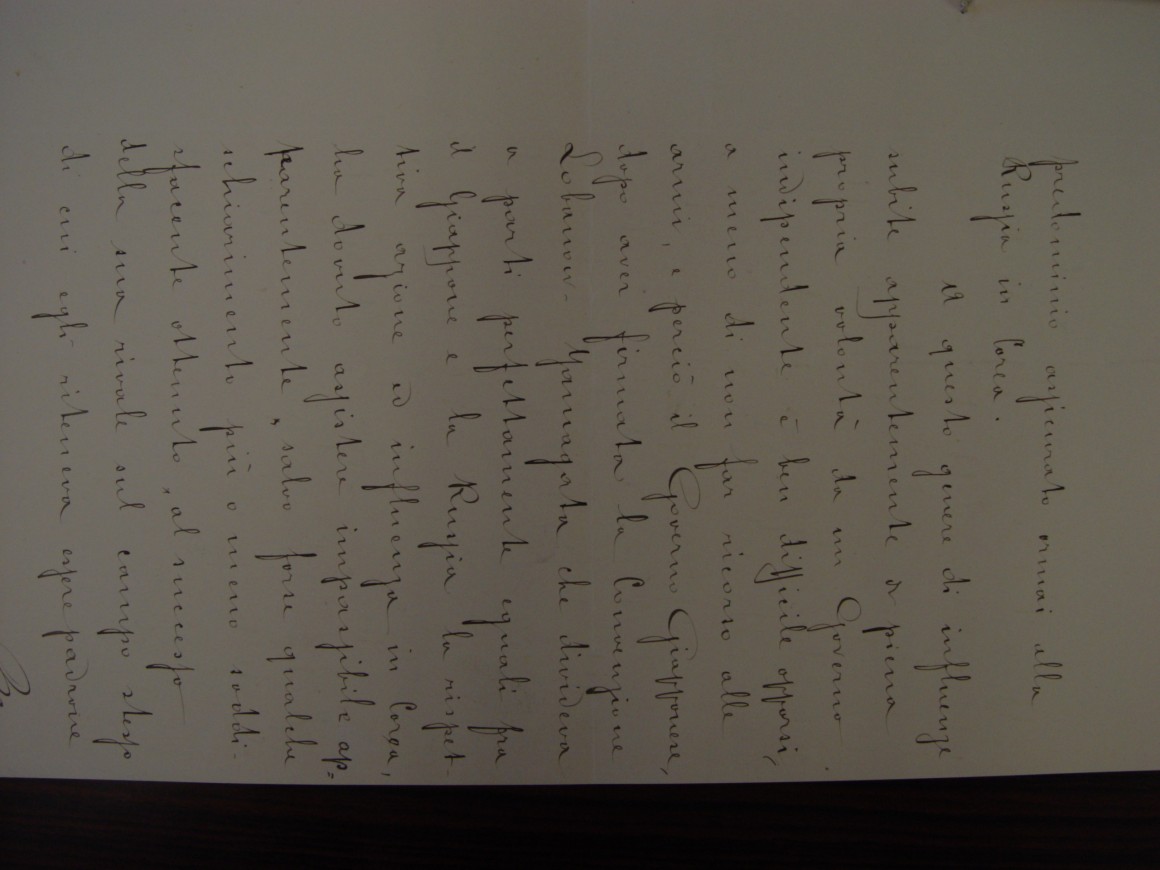 predominio assicurato omai alla
Russia in Corea.
A questo genere di influenze
subite apparentemente di piena
propria volontà da un Governo
indipendente è ben difficile opporsi,
a meno di non far ricorso alle
armi, e perciò il Governo Giapponese,
dopo aver firmato la Convenzione
Lobanow-Yamagata che divideva
a parti perfettamente eguali fra
il Giappone e la Russia la rispet-
tiva azione ed influenza in Corea,
ha dovuto assistere impassibile ap=
parentemente, salvo forse qualche
schiarimento più o meno soddi-
sfacente ottenuto, al successo
della sua rivale sul campo stesso
di cui egli riteneva essere padrone